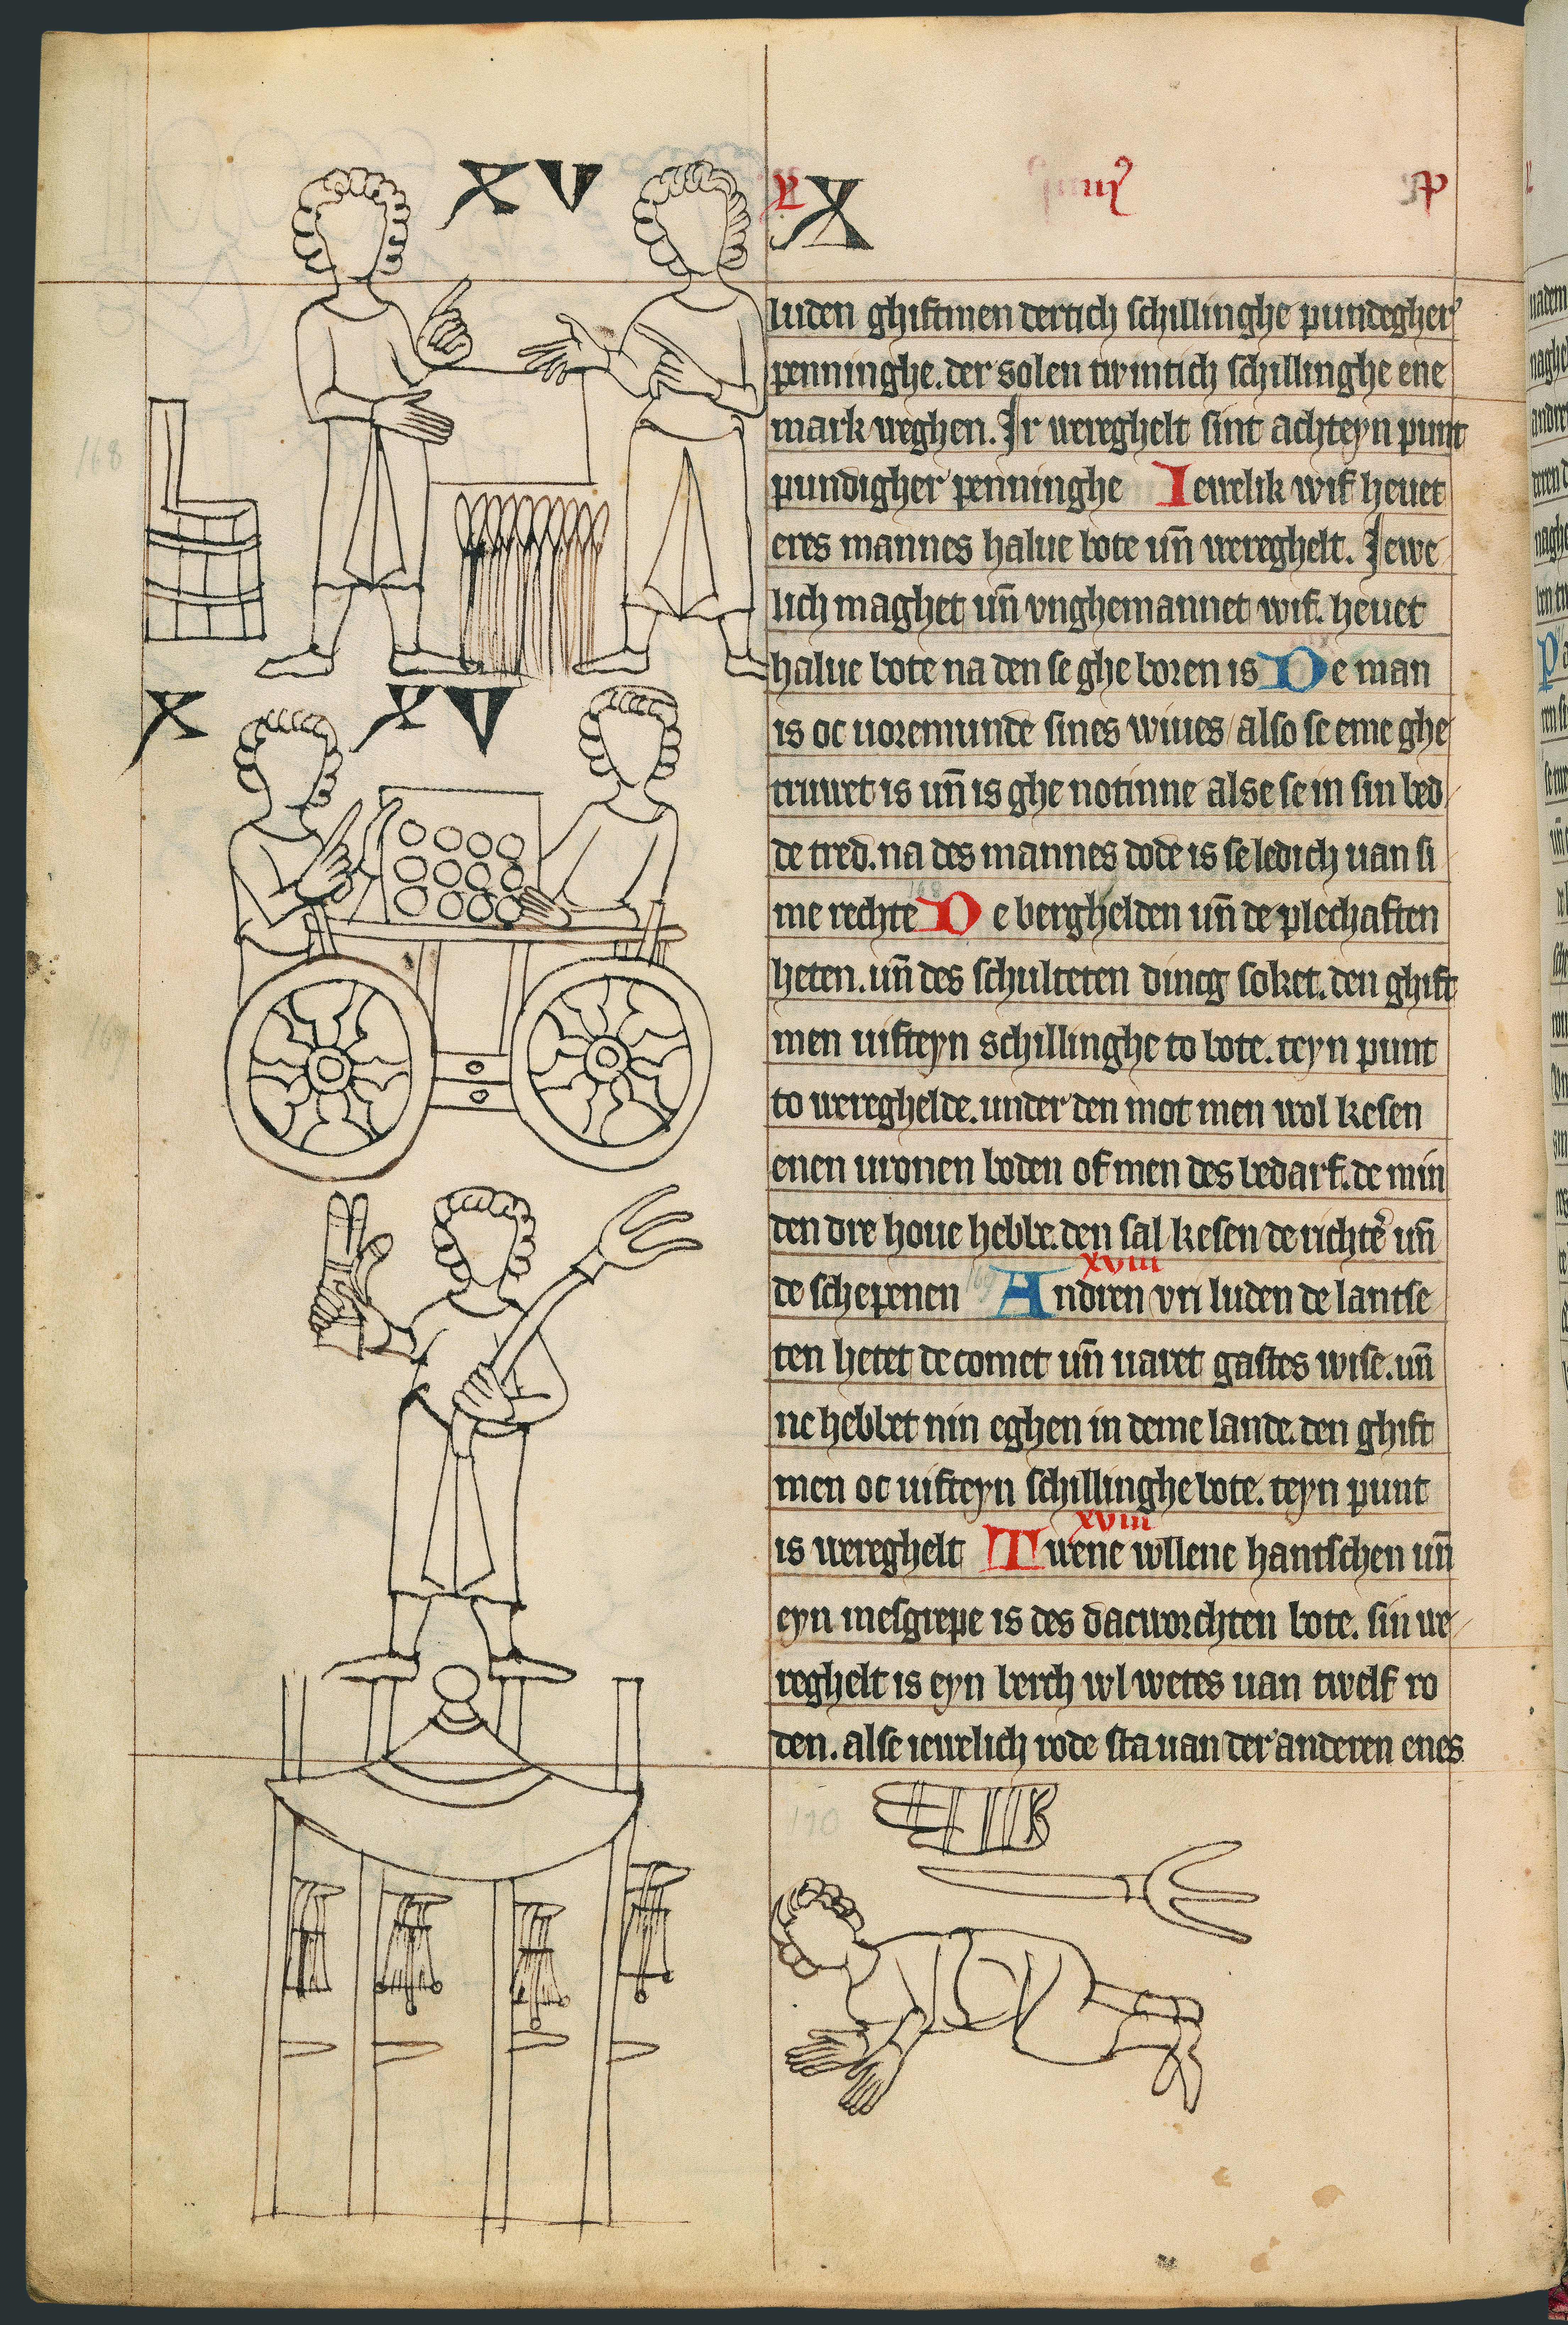 XV
X
X XV
luden ghiftmen dertich schillinghe pundegher'
penninghe. der solen twintich schillinghe ene
mark weghen. Ir wereghelt sint achteyn punt
pundigher penninghe Iewelik wif heuet
eres mannes halue bote un̄ wereghelt. Iewe
lich maghet un̄ vnghemannet wif. heuet
halue bote na den se ghe boren is De man
is oc uoremunde sines wiues / also se eme ghe
truwet is un̄ is ghe notinne alse se in sin bed
de tred. na des mannes dode is se ledich uan si
me rechte De berghelden un̄ de plechaften
heten. un̄ des schulteten dincg soket. den ghift
men uifteyn schillinghe to bote. teyn punt
to wereghelde. under den mot men wol kesen
enen uronen boden of men des bedarf. de min
den dre houe hebbe. den sal kesen de richte͛ un̄
xviii
de schepenen Andren vri luden de lantse
ten hetet de comet un̄ uaret gastes wise. un̄
ne hebbet nin eghen in deme lande. den ghift
men oc uifteyn schillinghe bote. teyn punt
xviii
is wereghelt Twene wllene hantschen un̄
eyn mesgrepe is des dacworchten bote. sin we
reghelt is eyn berch wl wetes uan twelf ro
den. alse iewelich rode sta uan der anderen enes
168
169
170